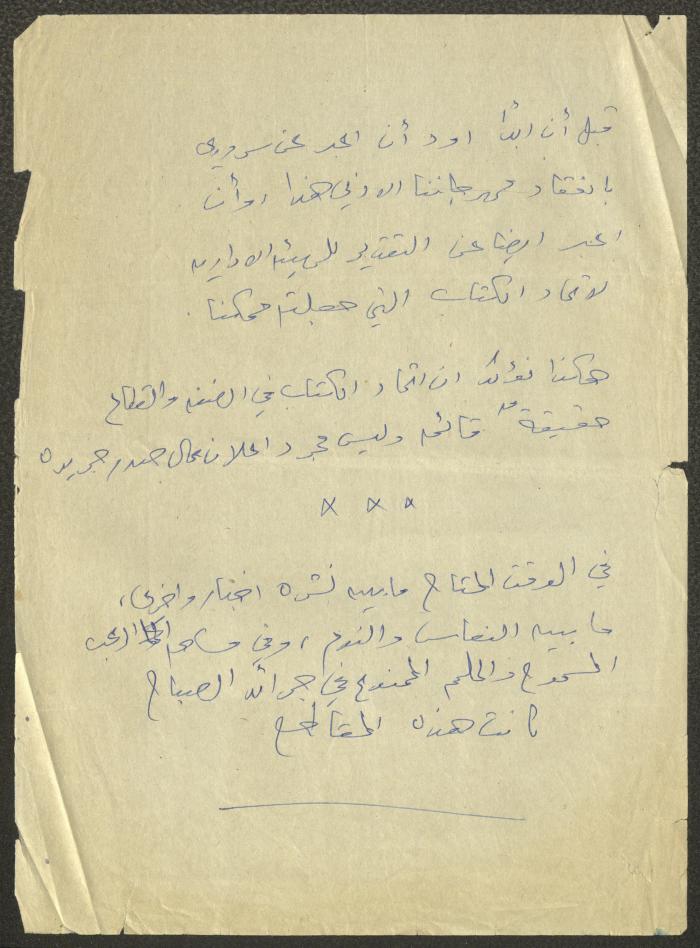 قبل أن ابدأ اود أن اعبر عن سروري
بانعقاد مهرجاننا الادبي هذا، وأن
اعبر ايضا عن التقدير للهيئه الاداريه
لاتحاد الكتاب التي جعلته ممكنا.
هكذا نؤكد ان اتحاد الكتاب في الضفه والقطاع
حقيقة قائمه وليس مجرد اعلان على صدر جريده
x x x
في الوقت المتاح ما بين نشره اخبار واخرى،
ما بين النعاس والنوم، وفي الرعب
المسموح والحلم الممنوع في جرائد الصباح
كانت هذه المقاطع